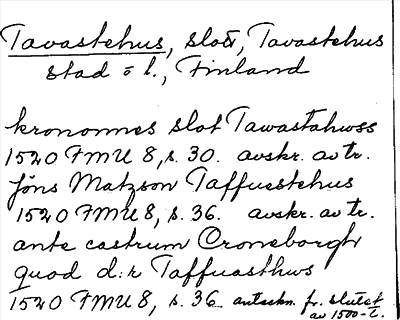 Tavastehus, slott, Tavastehus
stad o l., Finland
kronones slot Tawastahwss
1520 FMU 8, s. 30. avskr. av tr.
Jöns Matzson Taffuestehus
1520 FMU 8, s. 36. avskr. av tr.
ante castrum Croneborgh
quod d:r Taffuasthws
1520 FMU 8, s. 36 anteckn. fr. slutet
av 1500-t.